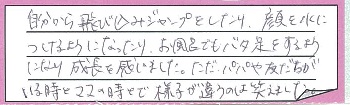 自分から飛び込みジャンプをしたり、顔を水に
つけるようになったり、お風呂でもバタ足をするよう
になり成長を感じました。ただ、パパや友だちが
いる時とママの時とで様子が違うのは笑えました。